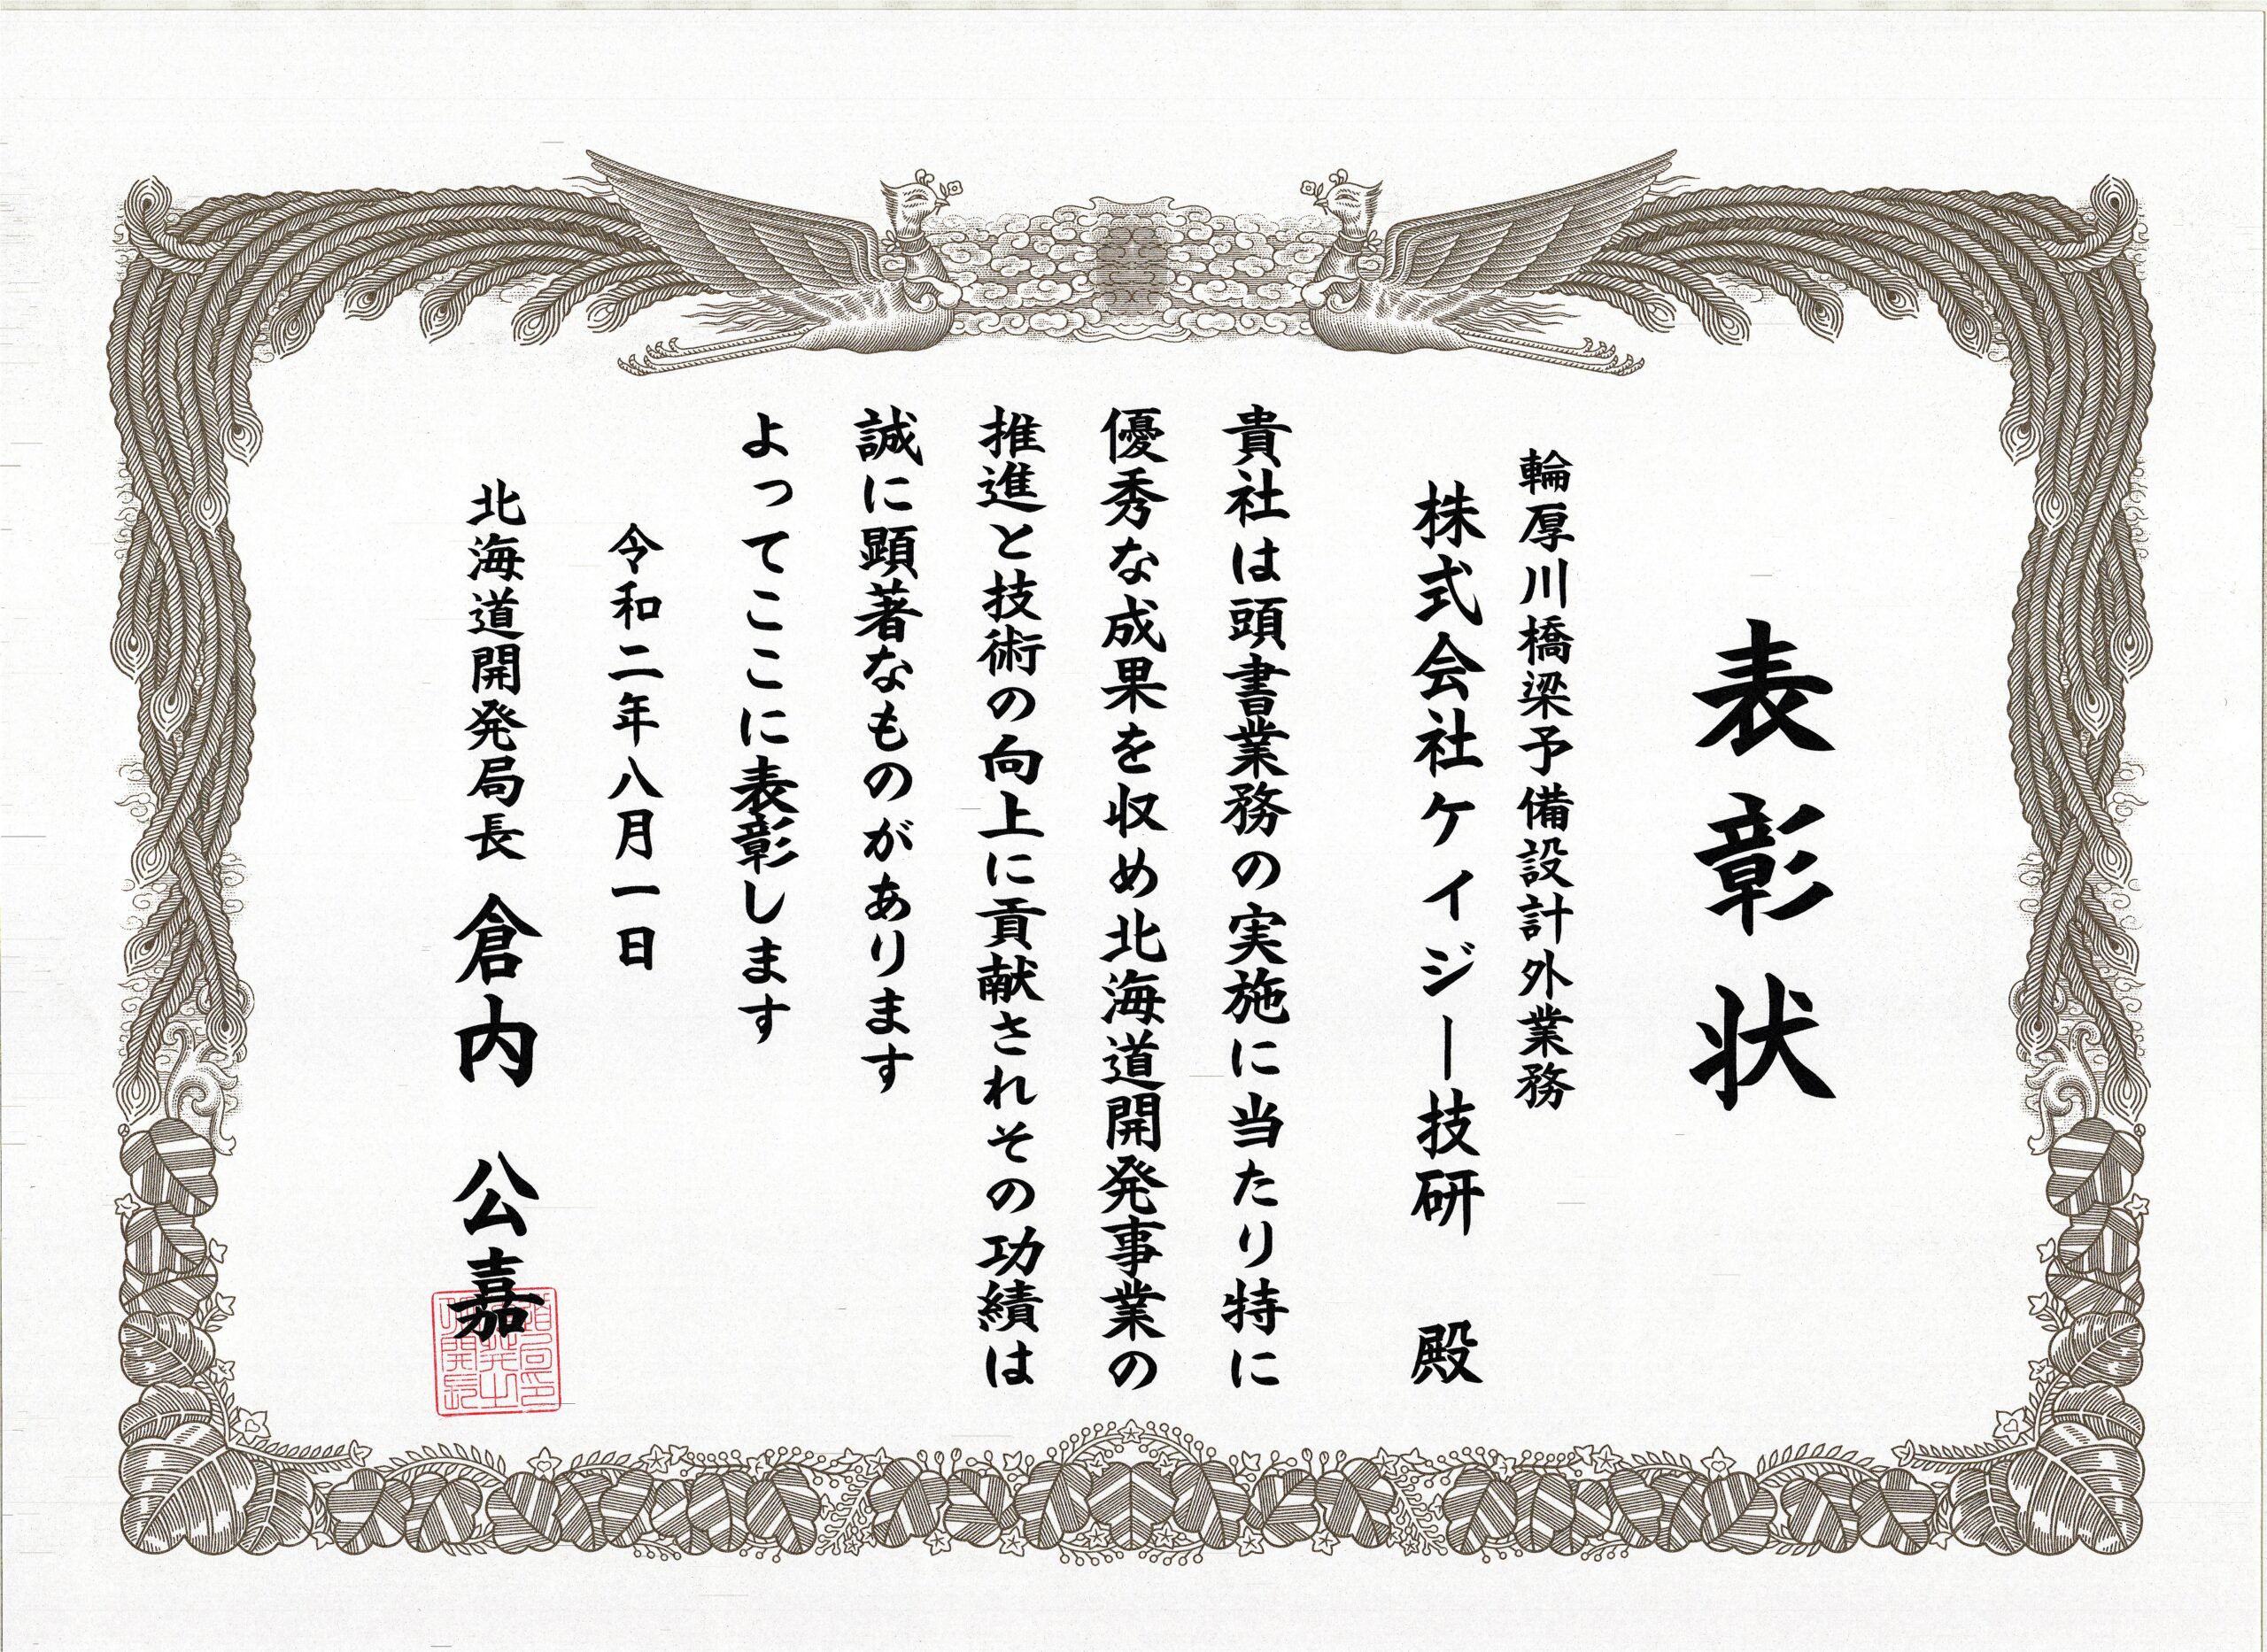 表彰状
輪厚川橋梁予備設計外業務
株式会社ケイジー技研 殿
貴社は頭書業務の実施に当たり特に
優秀な成果を収め北海道開発事業の
推進と技術の向上に貢献されその功績は
誠に顕著なものがあります
よってここに表彰します
令和二年八月一日
北海道開発局長 倉内 公嘉